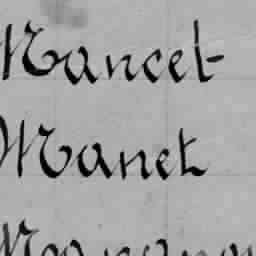 Mancet
Manet